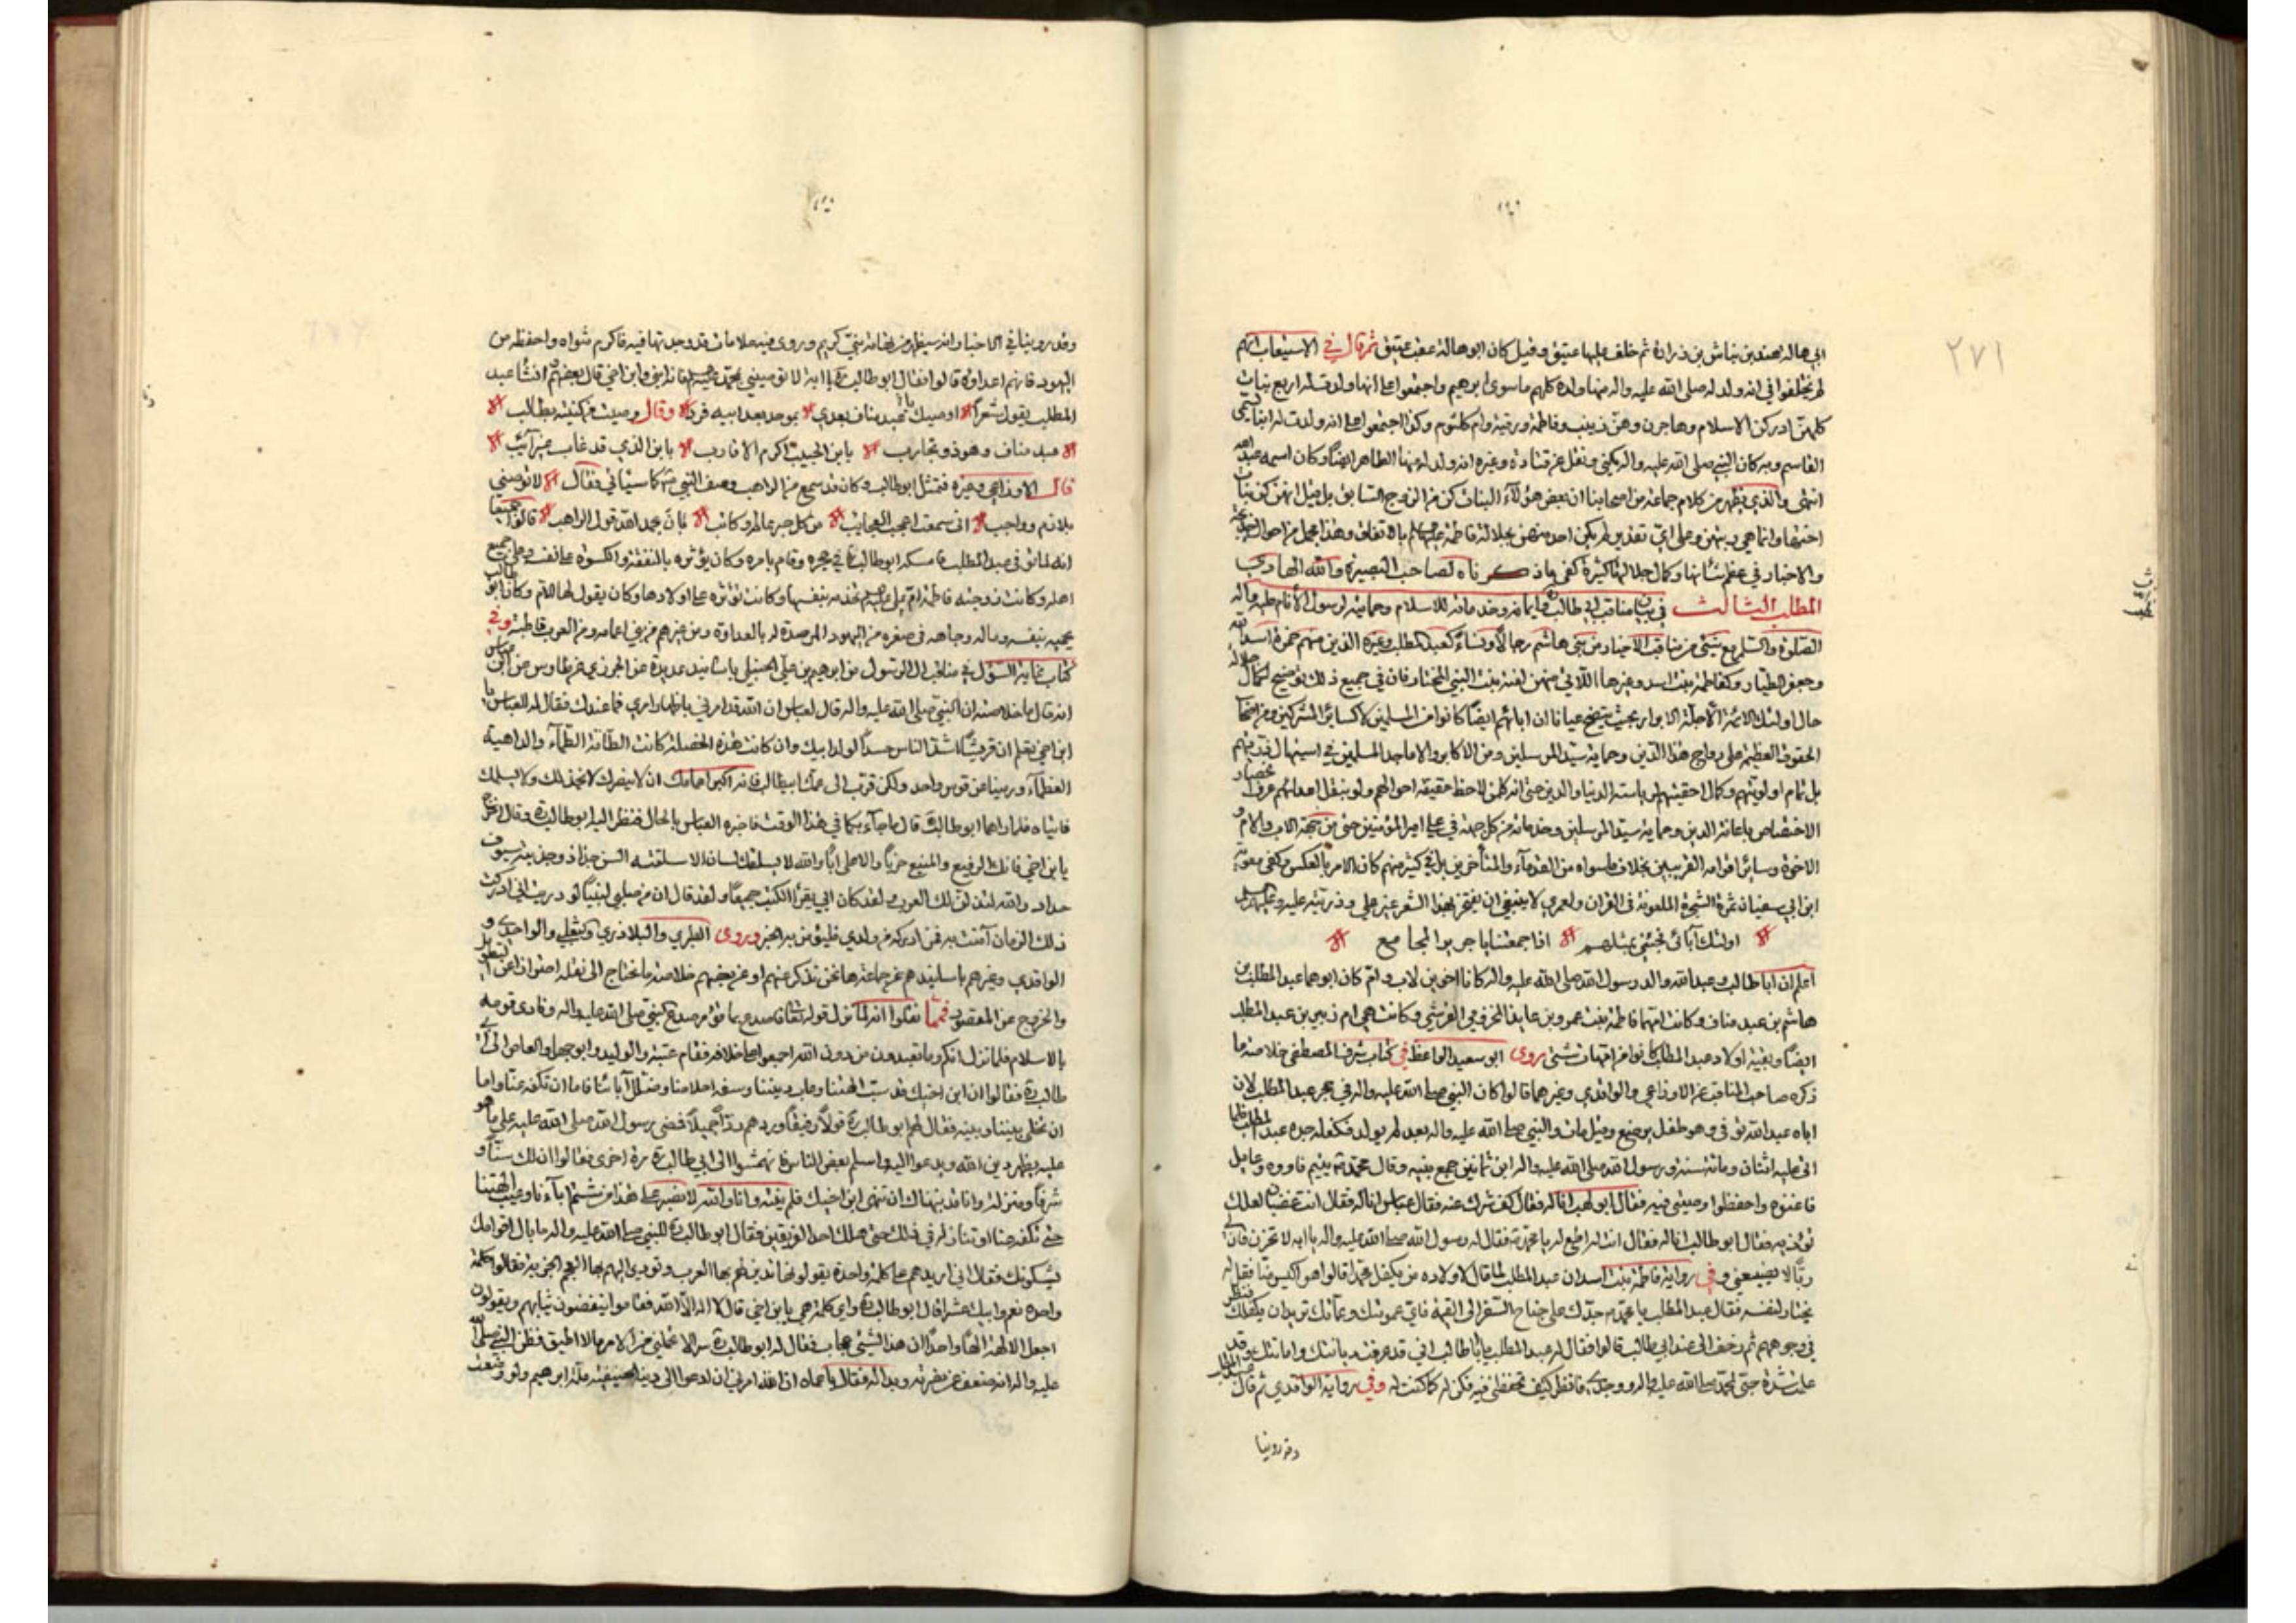 ٢٧١
ابي هالة هند بن نباش بن زرارة ثم خلف عليها عتيق وقيل كان ابو هالة عقب عتيق ثم قال في الاستيعاب انهم
لم يختلفوا في انه ولد له صلى الله عليه واله منها ولده كلهم ما سوى ابرهيم واجمعوا على انها ولدت له اربع بنات
كلهن ادركن الاسلام وهاجرن وهن زينب وفاطمة ورقية وام كلثوم وكذا اجتمعوا على انه ولدت له ابنا يسمى
القاسم وبه كان النبي صلى الله عليه واله يكنى ونقل عن قتادة وغيره انه ولد له منها الطاهر ايضا وكان اسمه عبد الله
انتهى والذي يظهر من كلام جماعة من اصحابنا ان بعض هؤلاء البنات كن من الزوج السابق بل قيل انهن كن بنات
اختها وانما هي ربتهن وعلى اي تقدير لم يكن احد منهن بجلالة فاطمة عليها السلم بالاتفاق وهذا مجمل من احوال خديجة
والاخبار في عظم شانها وكمال جلالتها كثيرة كفى ما ذكرناه لصاحب البصيرة والله الهادي
المطلب الثالث في بيان مناقب ابي طالب وايمانه وخدماته للاسلام وحمايته لرسول الأنام عليه واله
الصلوة والسلم مع شيء من مناقب الاخيار من بني هاشم رجالا ونساء كعبد المطلب وغيره الذين منهم حمزة اسد الله
وجعفر الطيار وكفاطمة بنت اسد وغيرها اللاتي منهن ابنة بنت النبي المختار فان في جميع ذلك توضيح لكمال جلالة
حال اولئك الائمة الاجلة الابرار بحيث يتضح عيانا ان اباءهم ايضا كانوا من المسلمين لا كسائر المشركين ومن اصحاب
الحقوق العظيمة على رواج هذا الدين وحماية سيد المرسلين ومن الاكابر والاماجد المسلمين في استيهال تقديمهم
بل تمام اولويتهم وكمال احقيتهم لرياسة الدنيا والدين حتى انه كل من لاحظ حقيقة احوالهم ولو بنقل اعدائهم عرف انحصار
الاختصاص باعانة الدين وحماية سيد المرسلين وخدماته من كل جهة في علي امير المؤمنين حتى من جهة الاب والام و
الاخوة وسائر اقوامه القريبين بخلاف ما سواه من القدماء والمتأخرين بل في كثير منهم كان الامر بالعكس وكفى معوية
ابن ابي سفيان ثمرة الشجرة الملعونة في القران ولعمري لا ينبغي ان يفتخر بهذا الشعر غير علي وذريته عليه وعليهم السلم
اولئك آبائي فجئني بمثلهم اذا جمعتنا يا جرير المجامع
اعلم ان ابا طالب وعبد الله والد رسول الله صلى الله عليه واله كانا اخوين لاب وام كان ابوهما عبد المطلب بن
هاشم بن عبد مناف وكانت امهما فاطمة بنت عمرو بن عايذ المخزومي القرشي وكانت هي ام زبير بن عبد المطلب
ايضا وبقية اولاد عبد المطلب كانوا من امهات شتى روى ابو سعيد الواعظ في كتاب شرف المصطفى خلاصة ما
ذكره صاحب المناقب عن الاوزاعي والواقدي وغيرهما قالوا كان النبي صلى الله عليه واله في حجر عبد المطلب لان
اباه عبد الله توفي وهو طفل يرضع وقيل مات والنبي صلى الله عليه واله بعد لم يولد فكفله جده عبد المطلب فلما
اتى عليه اثنتان ومائة سنة ورسول الله صلى الله عليه واله ابن ثمانين جمع بنيه وقال محمد يتيم فاووه وعايل
فاغنوه واحفظوا وصيتي فيه فقال ابو لهب انا له فقال كف شرك عنه فقال عباس انا له فقال انت غضبان لعلك
تؤذيه فقال ابو طالب انا له فقال انت له اطع له يا محمد فقال له رسول الله صلى الله عليه واله يا ابه لا تحزن فان لي
ربا لا يضيعني وفي رواية فاطمة بنت اسد ان عبد المطلب لما قال لاولاده من يكفل محمدا قالوا هو اكيس منا فقل له
يختار لنفسه فقال عبد المطلب يا محمد جدك على جناح السفر الى القيمة فاي عمومتك وعماتك تريد ان يكفلك فنظر
في وجوههم ثم زحف الى عند ابي طالب قالوا فقال له عبد المطلب يا ابا طالب اني قد عرفت ديانتك وامانتك وقد
علمت شدة حبي لمحمد صلى الله عليه واله ووجدي به فانظر كيف تحفظني فيه فكن له كما كنت له وفي رواية الواقدي ثم قال عبد المطلب
وقد روينا
وقد روينا في الاخبار انه سيظهر من تهامة نبي كريم وروى فيه علامات قد وجدتها فيه فاكرم مثواه واحفظه من
اليهود فانهم اعداؤه قالوا فقال ابو طالب يا ابه لا توصيني بمحمد فانه ابني وابن اخي قال بعضهم انشأ عبد
المطلب يقول شعرا اوصيك يا عبد مناف بعدي بموحد بعد ابيه فرد وقال وصيت من كنيته بطالب
عبد مناف وهو ذو تجارب يا بن الحبيب اكرم الاقارب يا بن الذي قد غاب غير آئب
قال الاوزاعي وغيره فتمثل ابو طالب وكان قد سمع من الراهب وصف النبي كما سيأتي فقال لا توصني
بلازم وواجب اني سمعت اعجب العجايب من كل حبر عالم وكاتب بان بحمد الله قول الراهب قالوا جميعا
انه لما توفي عبد المطلب مسكه ابو طالب في حجره وقام بامره وكان يؤثره بالنفقة والكسوة على نفسه وعلى جميع
اهله وكانت زوجته فاطمة ام علي تخدمه بنفسها وكانت تؤثره على اولادها وكان يقول لها الام وكان ابو طالب
يحميه بنفسه وماله وجاهه في صغره من اليهود المرصدة له بالعداوة ومن غيرهم من بني اعمامه ومن العرب قاطبة وفي
كتاب نهاية السؤل في مناقب ال الرسول من ابرهيم بن علي الحنبلي باسانيد عديدة عن طاوس عن ابن عباس
انه قال ما خلاصته ان النبي صلى الله عليه واله قال لعباس ان الله قد امرني باظهار امري فما عندك فقال له العباس يا
ابن اخي تعلم ان قريشا اشد الناس حسدا لولد ابيك وان كانت هذه الخصلة كانت الطامة الطماء والداهية
العظماء ورمينا عن قوس واحد ولكن قرب الى عمك ابيطالب فانه اكبر اعمامك ان لا ينصرك لا يخذلك ولا يسلمك
فاتياه فلما راهما ابو طالب قال ما جاء بكما في هذا الوقت فاخبره العباس بالحال فنظر اليه ابو طالب وقال اخرج
يا بن اخي فانك الرفيع والمنيع حزبا والاعلى ابا والله لا يسلقك لسان الا سلقته السن حداد وجذبته سيوف
حداد والله لتذلن لك العرب ولقد كان ابي يقرأ الكتب جميعا ولقد قال ان من صلبي لنبيا لوددت اني ادركت
ذلك الزمان آمنت به فمن ادركه من ولدي فليؤمن به الخبر وروى الطبري والبلاذري والثعلبي والواحدي و
الواقدي وغيرهم باسانيدهم عن جماعة ها نحن نذكر عنهم او عن بعضهم خلاصة ما نحتاج الى نقله احترازا عن التطويل
والخروج عن المقصود فمما نقلوا انه لما نزل قوله تعالى فاصدع بما تؤمر صدع النبي صلى الله عليه واله ونادى قومه
بالاسلام فلما نزل انكم وما تعبدون من دون الله اجمعوا على خلافه فقام عتبة والوليد وابو جهل والعاص الى ابي
طالب فقالوا ان ابن اخيك قد سب الهتنا وعاب ديننا وسفه احلامنا وضلل آباءنا فاما ان تكفه عنا واما
ان تخلي بيننا وبينه فقال لهم ابو طالب قولا رفيقا وردهم ردا جميلا فمضى رسول الله صلى الله عليه على ما هو
عليه يظهر دين الله ويدعوا اليه واسلم بعض الناس فانهمشوا الى ابي طالب مرة اخرى فقالوا ان لك سنا و
شرفا ومنزلة وانا قد نهيناك ان تنهى ابن اخيك فلم ينته وانا والله لا نصبر على هذا من شتم اباءنا وعيب الهتنا
حتى تكفه عنا او تنازله في ذلك حتى يهلك احد الفريقين فقال ابو طالب للنبي صلى الله عليه واله ما بال اقوامك
يشكونك فقال اني اريدهم على كلمة واحدة يقولونها تدين لهم بها العرب وتؤدي اليهم بها العجم الجزية فقالوا كلمة
واحدة نعم وابيك عشرا قال ابو طالب واي كلمة هي يا بن اخي قال لا اله الا الله فقاموا ينفضون ثيابهم ويقولون
اجعل الالهة الها واحدا ان هذا لشيء عجاب فقال له ابو طالب لا تحملني من الامر ما لا اطيق فظن النبي صلى الله
عليه واله انه ضعف عن نصرته فقال يا عماه ان الله امرني ان ادعوا الى دينه الحنيفية ملة ابرهيم ولو وضعت